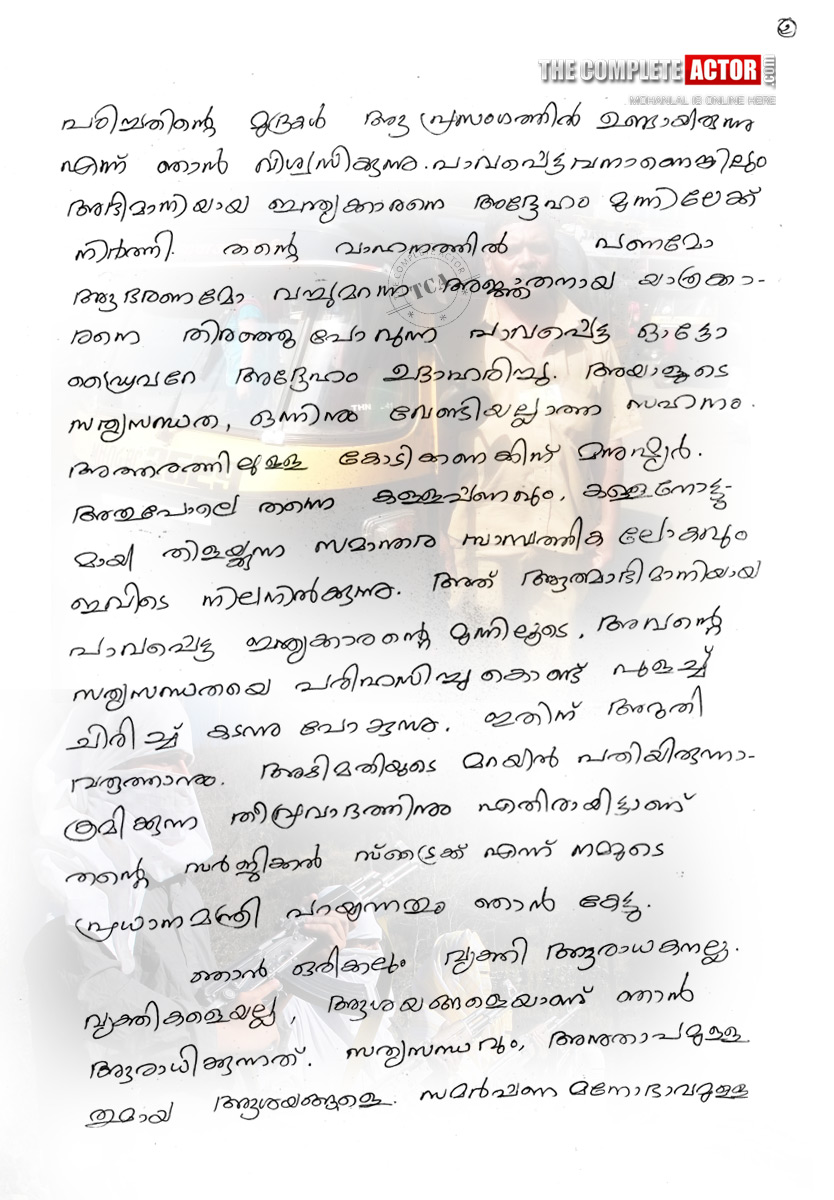 ൭
THE COMPLETE ACTOR .com
MOHANLAL IS ONLINE HERE
പഠിച്ചതിന്റെ മുദ്രകൾ ആ പ്രസംഗത്തിൽ ഉണ്ടായിരുന്നു
എന്ന് ഞാൻ വിശ്വസിക്കുന്നു. പാവപ്പെട്ടവനാണെങ്കിലും
അഭിമാനിയായ ഇന്ത്യക്കാരനെ അദ്ദേഹം മുന്നിലേക്ക്
നിർത്തി. തന്റെ വാഹനത്തിൽ പണമോ
ആഭരണമോ വച്ചുമറന്ന അജ്ഞാതനായ യാത്രക്കാ-
രനെ തിരഞ്ഞു പോവുന്ന പാവപ്പെട്ട ഓട്ടോ
ഡ്രൈവറേ അദ്ദേഹം ഉദാഹരിച്ചു. അയാളുടെ
സത്യസന്ധത, ഒന്നിനും വേണ്ടിയല്ലാത്ത സഹനം.
അത്തരത്തിലുള്ള കോടിക്കണക്കിന് മനുഷ്യർ.
അതുപോലെ തന്നെ കള്ളപ്പണവും, കള്ളനോട്ടു-
മായി തിളയ്ക്കുന്ന സമാന്തര സാമ്പത്തിക ലോകവും
ഇവിടെ നിലനിൽക്കുന്നു. അത് ആത്മാഭിമാനിയായ
പാവപ്പെട്ട ഇന്ത്യക്കാരന്റെ മുന്നിലൂടെ, അവന്റെ
സത്യസന്ധതയെ പരിഹസിച്ചുകൊണ്ട് പുളച്ച്
ചിരിച്ച് കടന്നു പോകുന്നു. ഇതിന് അറുതി
വരുത്താനും. അഴിമതിയുടെ മറയിൽ പതിയിരുന്നാ-
ക്രമിക്കുന്ന തീവ്രവാദത്തിനും എതിരായിട്ടാണ്
തന്റെ സർജ്ജിക്കൽ സ്ട്രൈക്ക് എന്ന് നമ്മുടെ
പ്രധാനമന്ത്രി പറയുന്നതും ഞാൻ കേട്ടു.
ഞാൻ ഒരിക്കലും വ്യക്തി ആരാധകനല്ല.
വ്യക്തികളെയല്ല, ആശയങ്ങളെയാണ് ഞാൻ
ആരാധിക്കുന്നത്. സത്യസന്ധവും, അനുതാപമുള്ള
തുമായ ആശയങ്ങളെ. സമർപ്പണ മനോഭാവമുള്ള
COMPLETE ACTOR
TCA